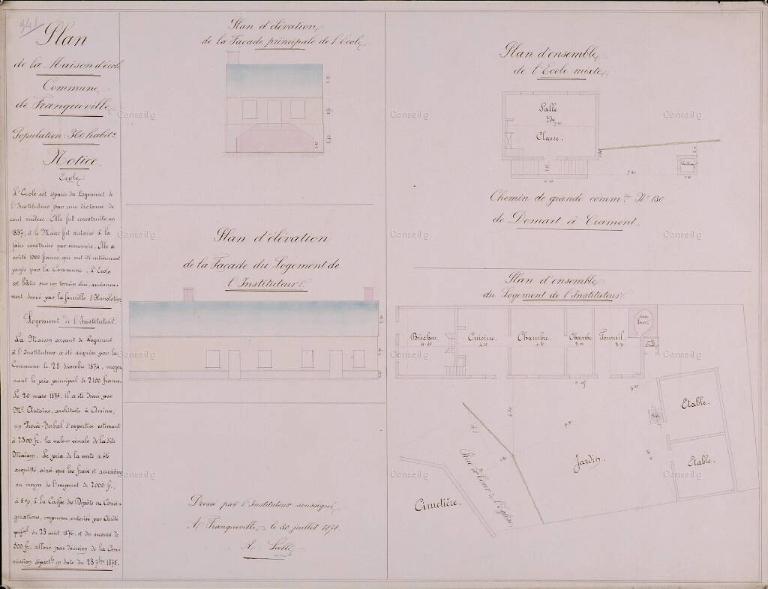 941
Plan
de la Maison d'école
Commune
de Franqueville
Population 360 habit.ts
Notice
Ecole
L'Ecole est séparée du Logement de
l'Instituteur par une distance de
cent mètres. Elle fut construite en
et le Maire fut autorisé à la
faire construire par économie. Elle a
coûté 1000 francs qui ont été entièrement
payés par la Commune. L'Ecole
est bâtie sur un terrain
donné par la famille
Logement de l'Instituteur
La Maison servant de Logement
à l'Instituteur a été acquise par la
Commune le 28 décembre 1874, moyen-
nant le prix principal de 2100 francs.
Le 20 mars 1875, il a été dressé par
Mr Antoine, architecte à Amiens,
un Procès-Verbal d'expertise estimant
à 2300 fr. la valeur vénale de ladite
Maison. Le prix de la vente a été
acquitté ainsi que les frais et accessoires
au moyen de l'emprunt de 2000 fr.
à la Caisse des Dépôts et Consi-
gnations, emprunt autorisé par Arrêté
du 23 août 1875, et du secours de
500 fr. alloué par décision de la Com-
mission départ.le en date du 28 7bre 1875.
Plan d'élévation
de la Façade principale de l'école
Plan d'élévation
de la Façade du Logement de
l'Instituteur
Dressé par l'Instituteur soussigné,
A Franqueville, le 30 juillet 1878.
Plan d'ensemble
de l'Ecole mixte
Salle
de
Classe
Chemin de grande comm.on No 130
de Domart à Cramont.
Plan d'ensemble
du Logement de l'Instituteur
Bûcher
Cuisine
Chambre
Chambre
Fournil
Jardin
Etable
Etable
Cimetière
Conseil©
Conseil©
Conseil©
Conseil©
Conseil©
Conseil©
Conseil©
Conseil©
Conseil©
Conseil©
Conseil©
Conseil©